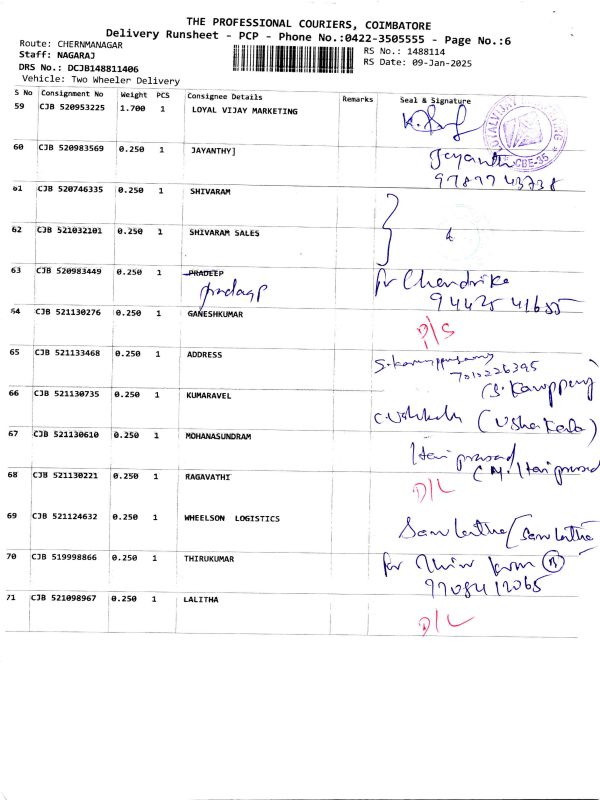 THE PROFESSIONAL COURIERS, COIMBATORE
Delivery Runsheet - PCP - Phone No.:0422-3505555 - Page No.:6
Route: CHERNMANAGAR
RS No.: 1488114
Staff: NAGARAJ
RS Date: 09-Jan-2025
DRS No.: DCJB148811406
Vehicle: Two Wheeler Delivery
S No Consignment No Weight PCS Consignee Details Remarks Seal & Signature
59 CJB 520953225 1.700 1 LOYAL VIJAY MARKETING
60 CJB 520983569 0.250 1 JAYANTHY] Jayanth
CBE-35
97877 43738
61 CJB 520746335 0.250 1 SHIVARAM
62 CJB 521032101 0.250 1 SHIVARAM SALES
63 CJB 520983449 0.250 1 PRADEEP for Chendrika
94425 41655
64 CJB 521130276 0.250 1 GANESHKUMAR D/S
65 CJB 521133468 0.250 1 ADDRESS
7010226395
66 CJB 521130735 0.250 1 KUMARAVEL (Usha Kala)
67 CJB 521130610 0.250 1 MOHANASUNDRAM Hari prasad
(M. Hari prasad
68 CJB 521130221 0.250 1 RAGAVATHI D/L
69 CJB 521124632 0.250 1 WHEELSON LOGISTICS
70 CJB 519998866 0.250 1 THIRUKUMAR for
71 CJB 521098967 0.250 1 LALITHA D/L